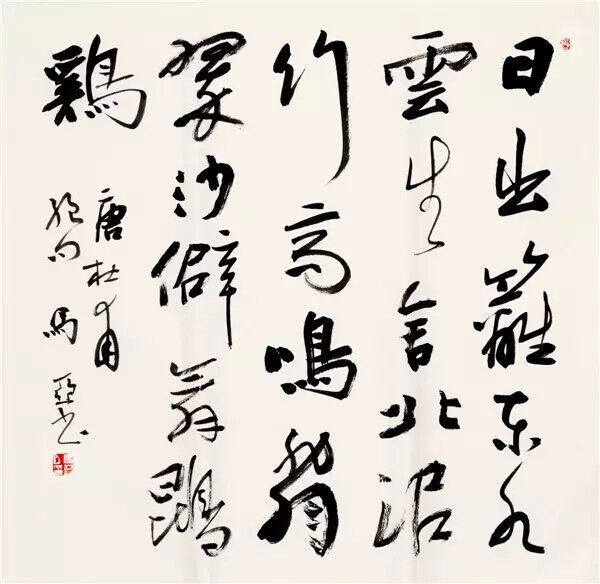 日出籬東水
雲生舍北泥
竹高鳴翡
翠沙僻舞鵾
鷄
唐杜甫
絕句 馬亞書